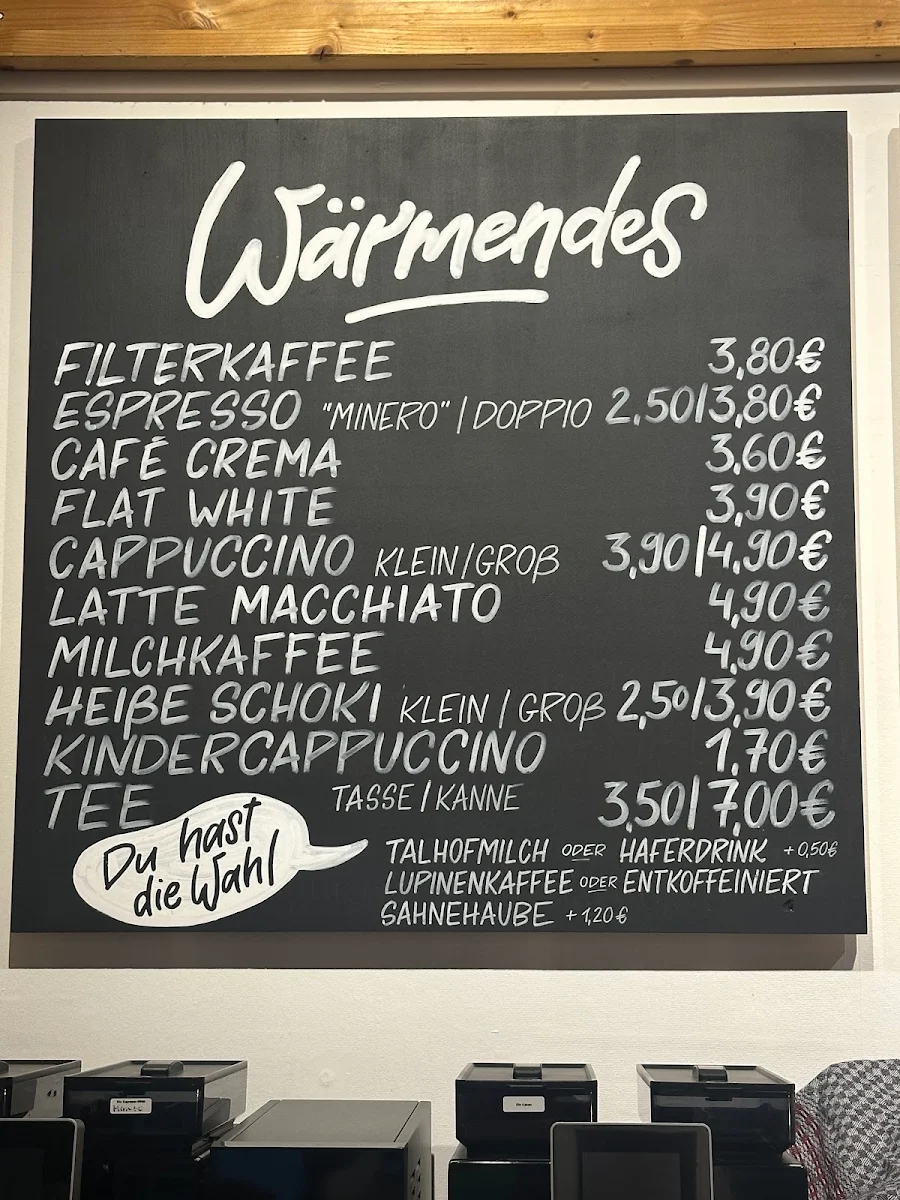 Wärmendes
FILTERKAFFEE 3,80€
ESPRESSO "MINERO" | DOPPIO 2,50|3,80€
CAFÉ CREMA 3,60€
FLAT WHITE 3,90€
CAPPUCCINO KLEIN/GROß 3,90|4,90€
LATTE MACCHIATO 4,90€
MILCHKAFFEE 4,90€
HEIßE SCHOKI KLEIN | GROß 2,50|3,90€
KINDERCAPPUCCINO 1,70€
TEE TASSE | KANNE 3,50|7,00€
Du hast
die Wahl
TALHOFMILCH ODER HAFERDRINK +0,50€
LUPINENKAFFEE ODER ENTKOFFEINIERT
SAHNEHAUBE +1,20€